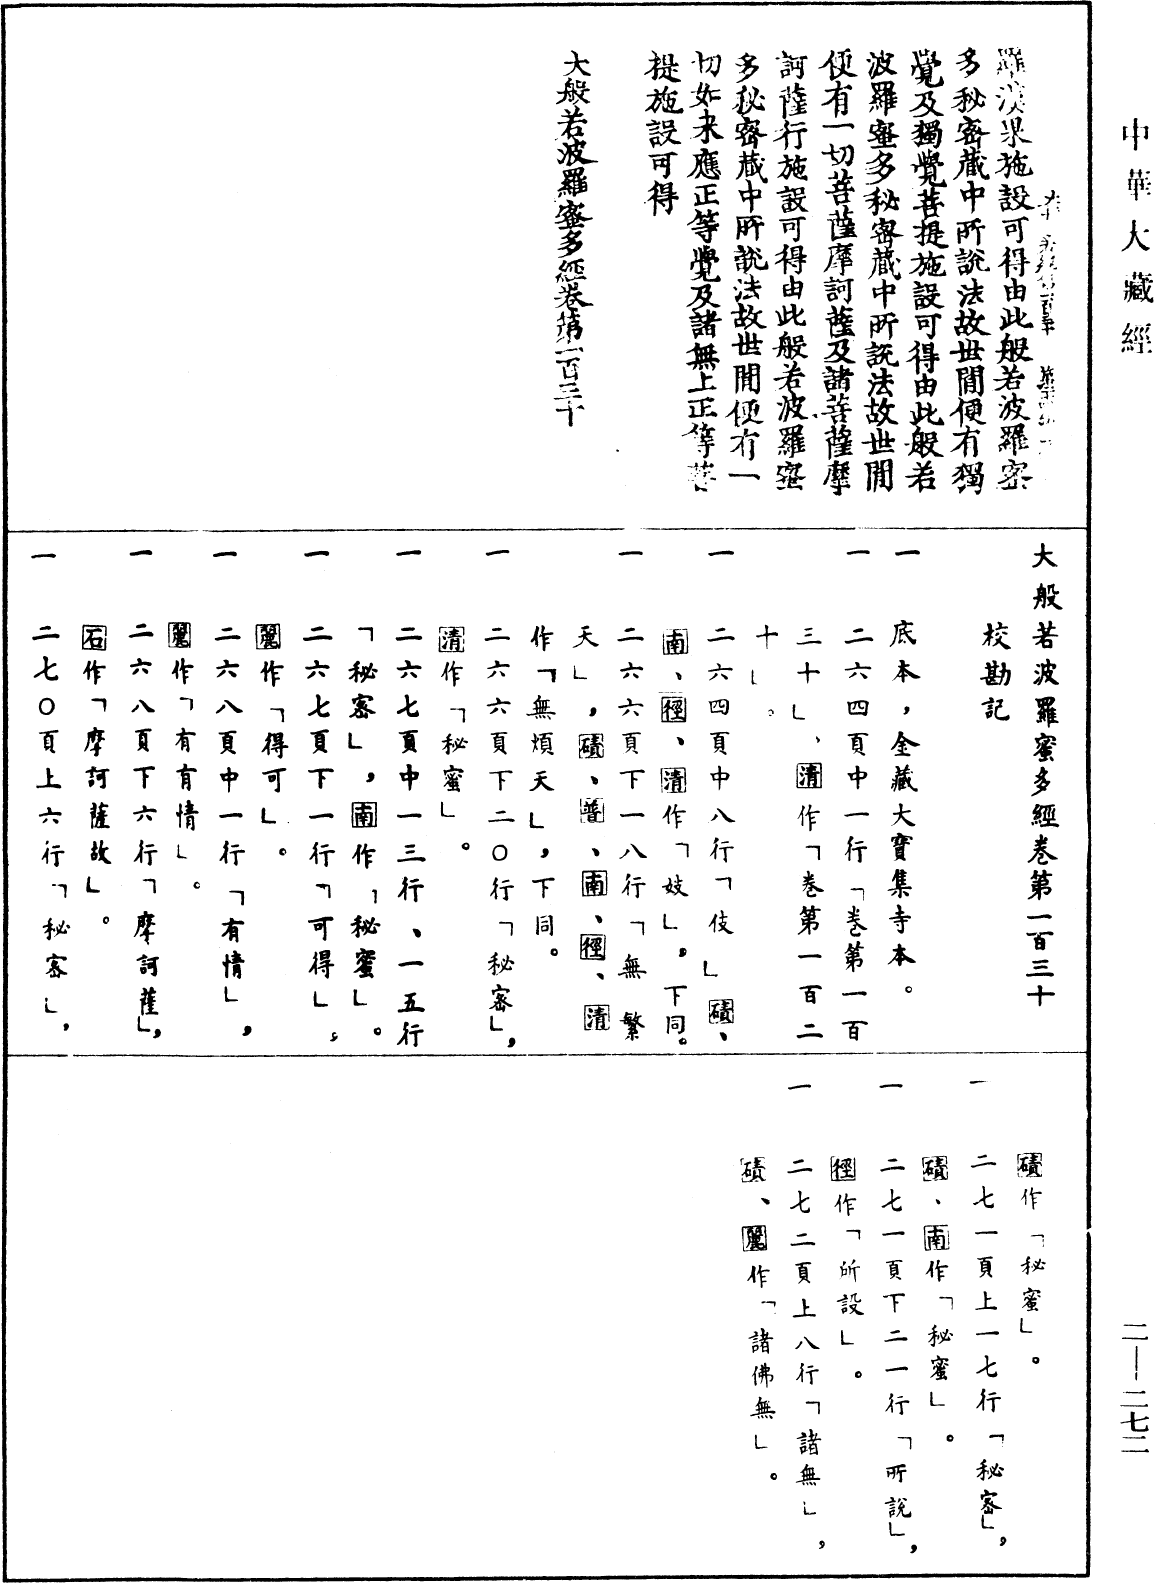 中華大藏經
羅漢果施設可得由此般若波羅蜜
多秘密藏中所說法故世間便有獨
覺及獨覺菩提施設可得由此般若
波羅蜜多秘密藏中所說法故世間
便有一切菩薩摩訶薩及諸菩薩摩
訶薩行施設可得由此般若波羅蜜
多秘密藏中所說法故世間便有一
切如来應正等覺及諸無上正等菩
提施設可得
大般若波羅蜜多經卷第一百三十
大般若波羅蜜多經卷第一百三十
校勘記
一 底本，金藏大寶集寺本。
一 二六四頁中一行「卷第一百
三十」、清作「卷第一百二
十」。
一 二六四頁中八行「伎」磧、
南、徑、清作「妓」，下同。
一 二六六頁下一八行「無繁
天」，磧、普、南、徑、清
作「無煩天」，下同。
一 二六六頁下二〇行「秘密」，
清作「秘蜜」。
一 二六七頁中一三行、一五行
「秘密」，南作「秘蜜」。
一 二六七頁下一行「可得」，
麗作「得可」。
一 二六八頁中一行「有情」，
麗作「有有情」。
一 二六八頁下六行「摩訶薩」，
石作「摩訶薩故」。
一 二七〇頁上六行「秘密」，
磧作「秘蜜」。
一 二七一頁上一七行「秘密」，
磧、南作「秘蜜」。
一 二七一頁下二一行「所說」，
徑作「所設」。
一 二七二頁上八行「諸無」，
磧、麗作「諸佛無」。
二—二七二